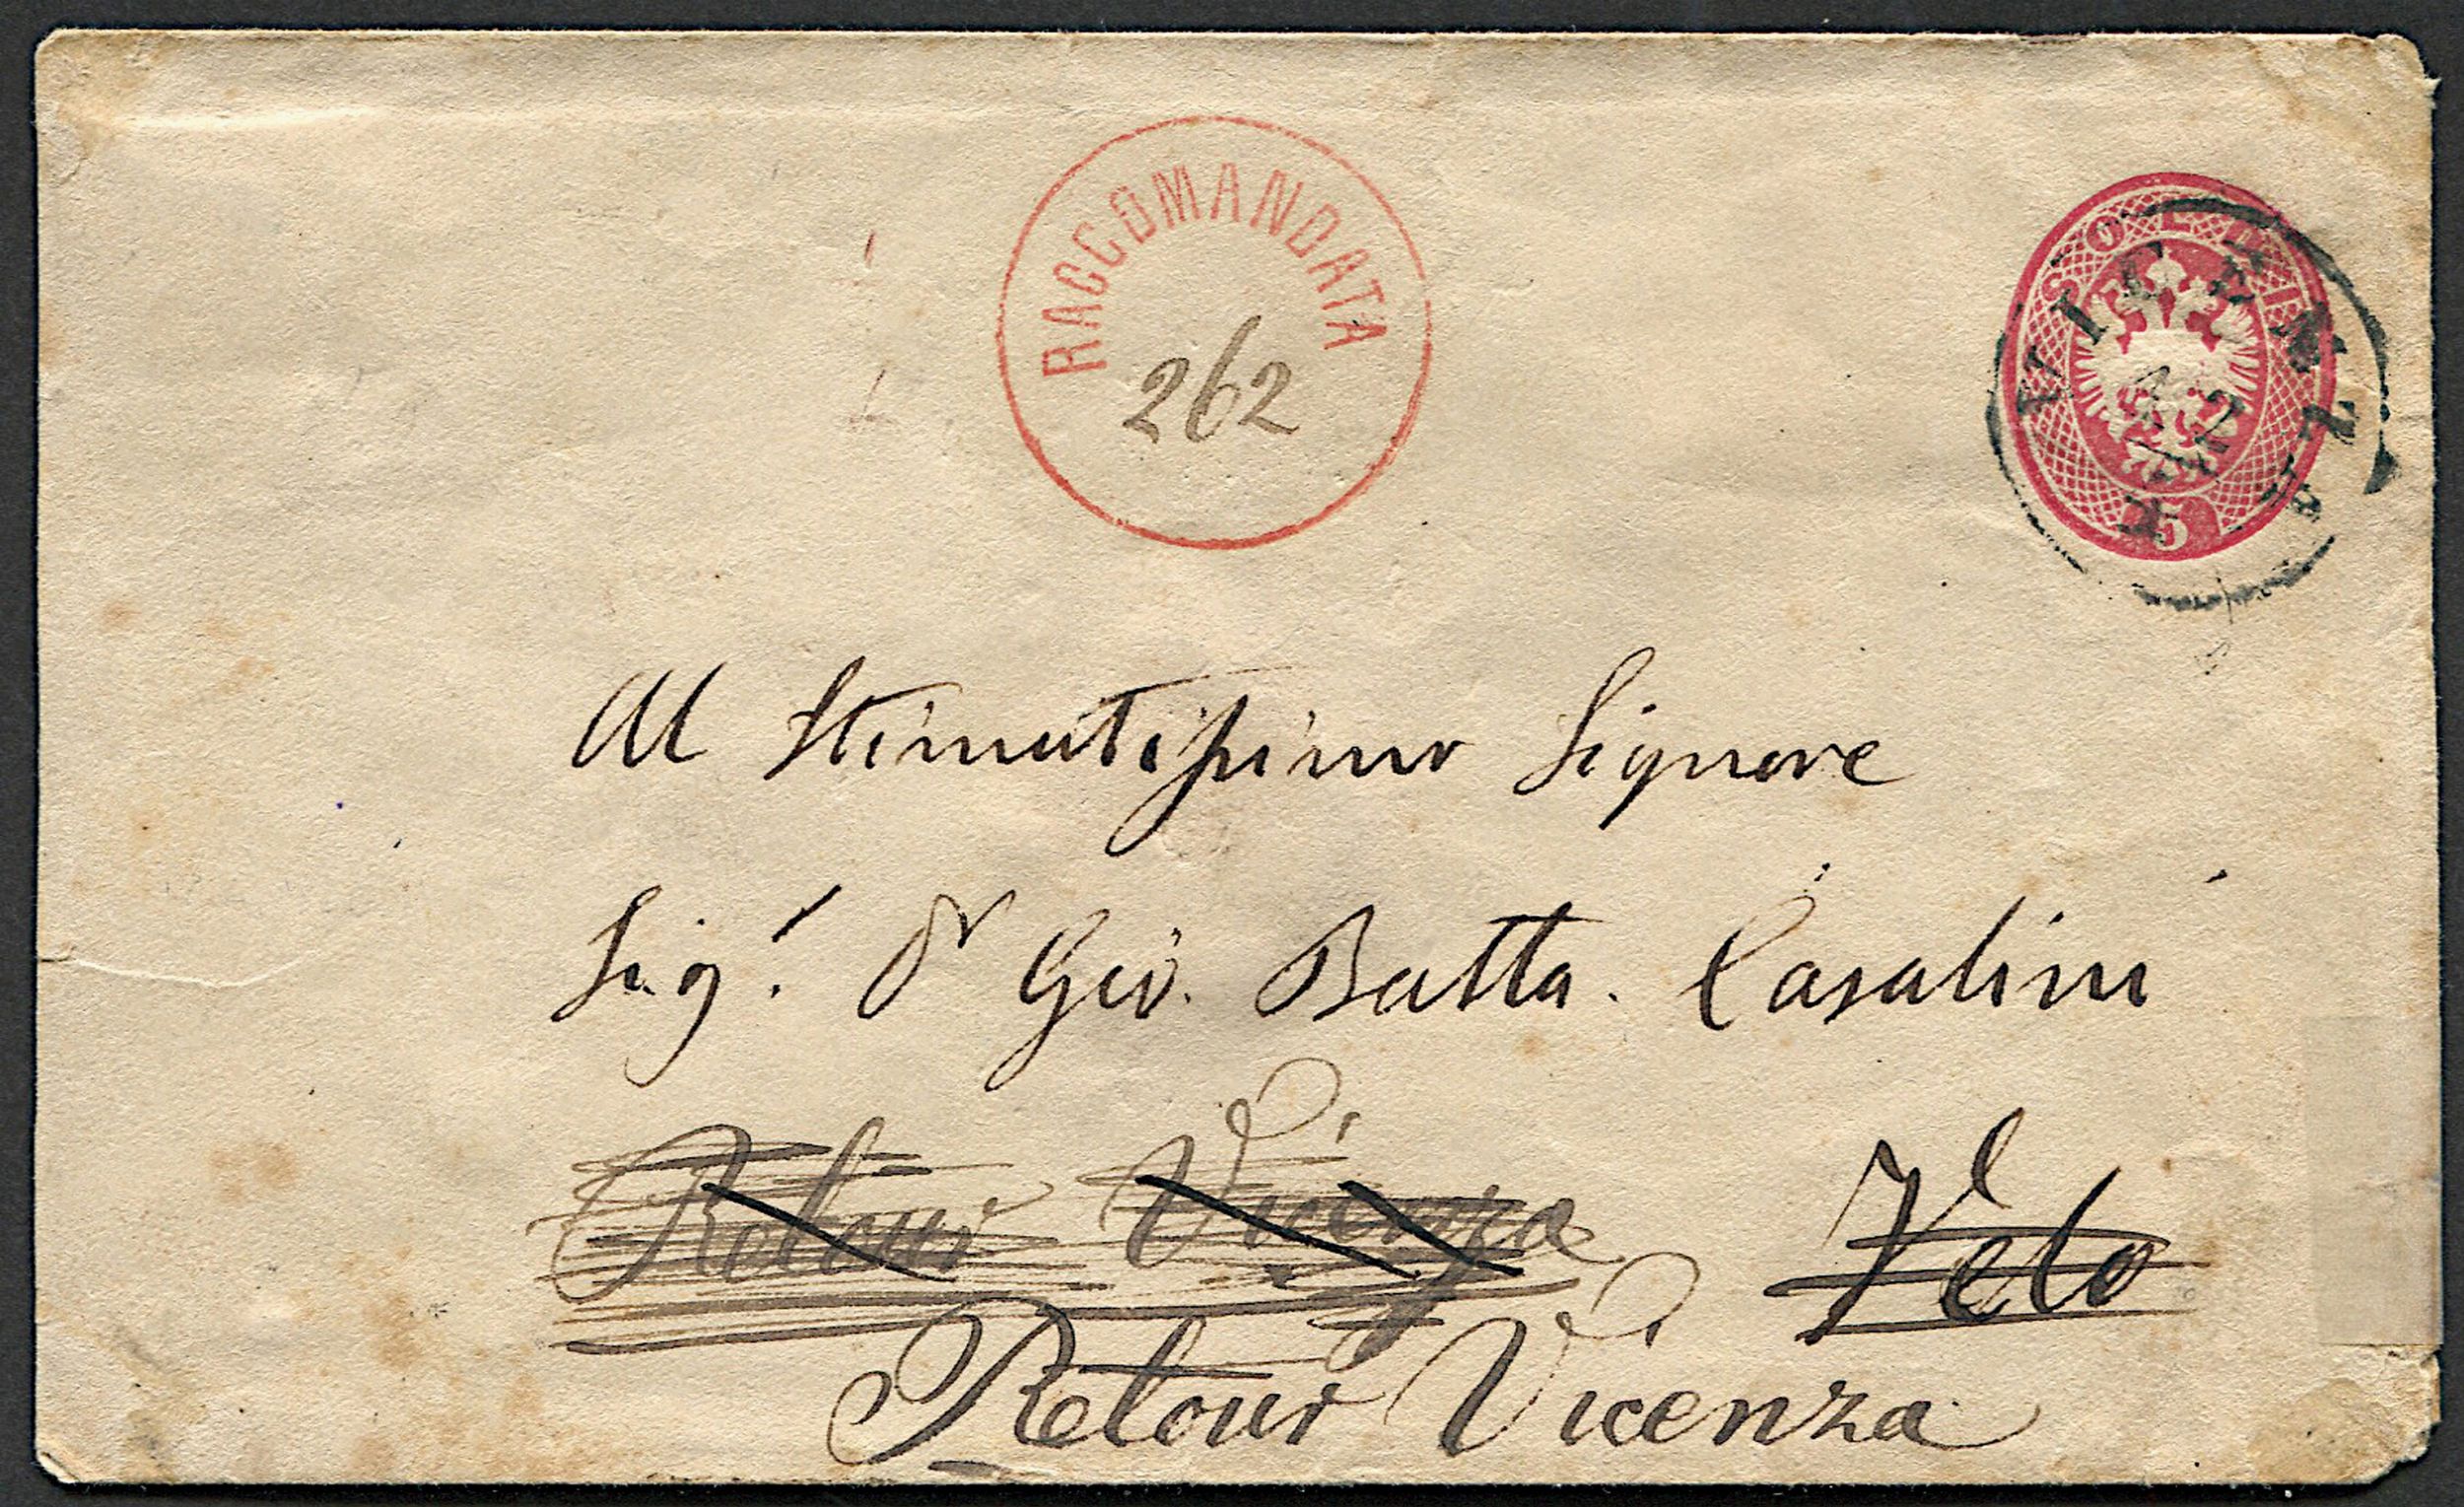 RACCOMANDATA
262
SOLDI
5
VICENZA
12
Al Stimatissimo Signore
Sig.r Dr Gio. Batta. Casalini
Retour Vicenza
Velo
Retour Vicenza